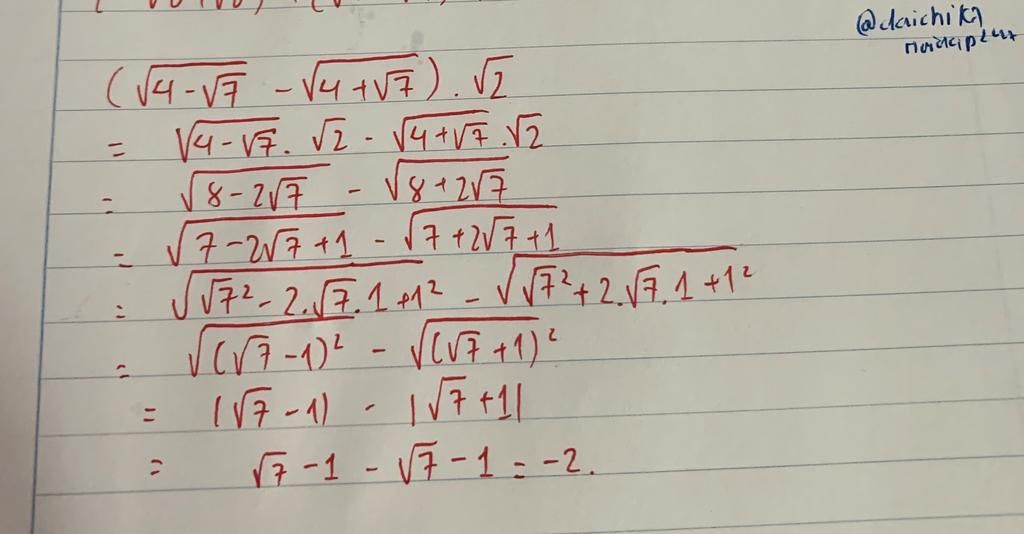 @daichik
(√4-√7 - √4+√7) . √2
= √4-√7 . √2 - √4+√7 . √2
= √8-2√7 - √8+2√7
= √7-2√7+1 - √7+2√7+1
= √√7²-2.√7.1+1² - √√7²+2.√7.1+1²
= √(√7-1)² - √(√7+1)²
= |√7-1| - |√7+1|
= √7-1-√7-1=-2.